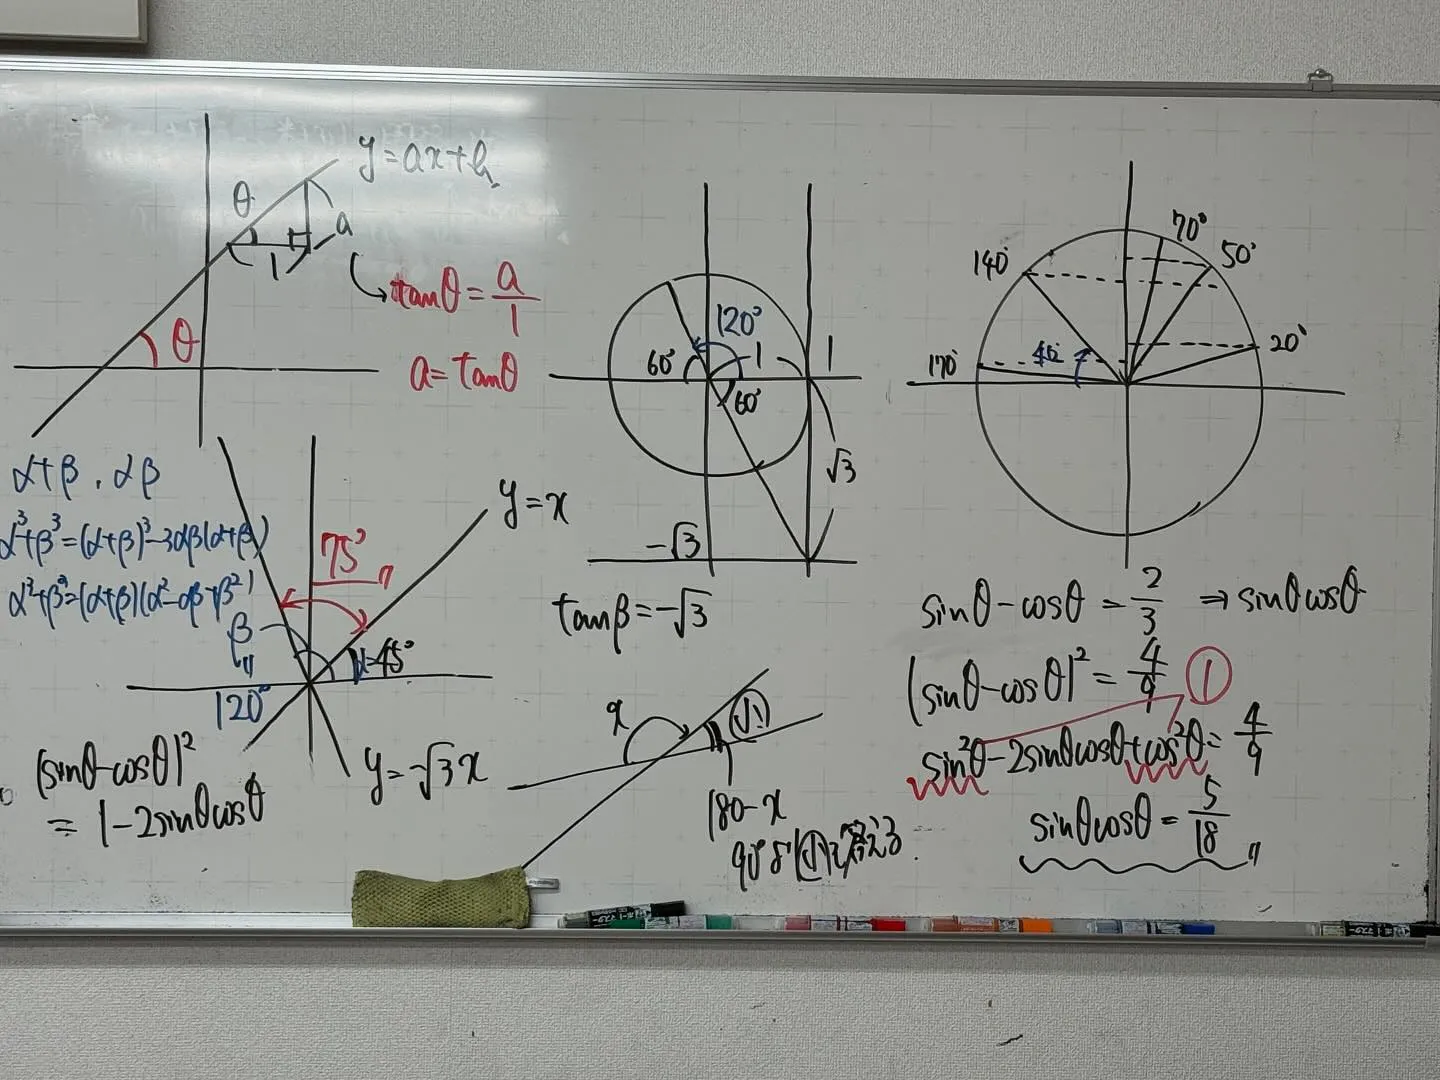 y=ax+b
θ
a
1
tanθ=a/1
θ
a=tanθ
α+β, αβ
α³+β³=(α+β)³-3αβ(α+β)
α³+β³=(α+β)(α²-αβ+β²)
75°
y=x
β
〃
120°
α=45°
y=-√3x
(sinθ-cosθ)²
=1-2sinθcosθ
120°
60°
1
1
60°
√3
-√3
tanβ=-√3
x
小
180-x
70°
50°
140°
20°
170°
40°
sinθ-cosθ=2/3 ⇒sinθcosθ
(sinθ-cosθ)²=4/9
1
sin²θ-2sinθcosθ+cos²θ=4/9
sinθcosθ=5/18〃